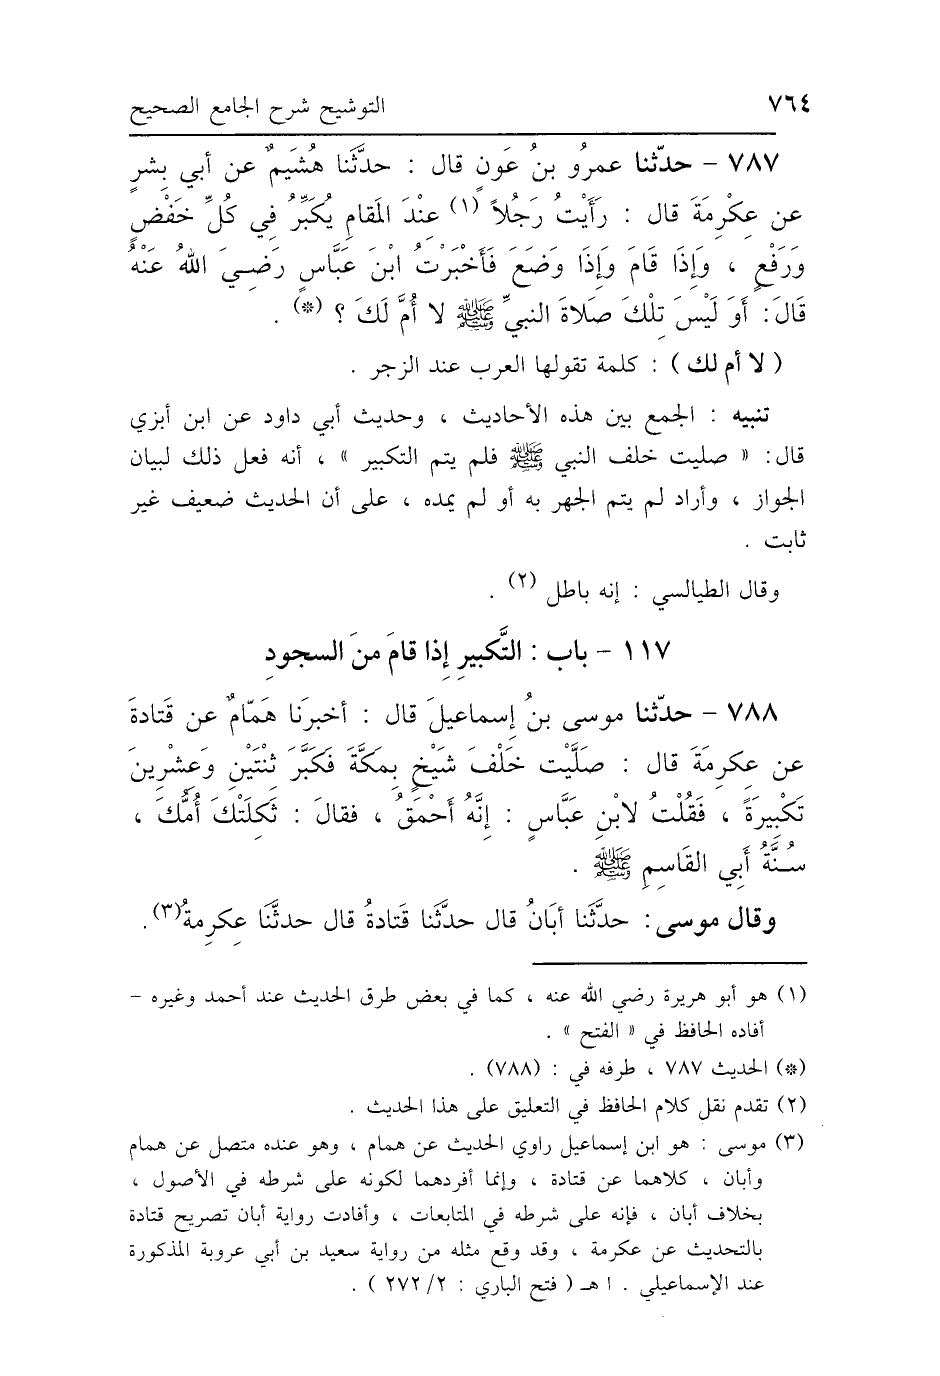 ٧٦٤ التوشيح شرح الجامع الصحيح
٧٨٧ - حدّثنا عمرُو بنُ عَونٍ قال : حدَّثَنا هُشَيمٌ عن أبي بِشرٍ
عن عِكْرِمَةَ قال : رَأَيْتُ رَجُلاً (١) عِنْدَ المَقامِ يُكَبِّرُ فِي كُلِّ خَفْضٍ
وَرَفْعٍ ، وَإِذَا قَامَ وَإِذَا وَضَعَ فَأَخْبَرْتُ ابْنَ عَبَّاسٍ رَضِيَ اللهُ عَنْهُ
قَالَ: أَوَ لَيْسَ تِلْكَ صَلاَةَ النبيِّ ﷺ لا أُمَّ لَكَ ؟ (*) .
( لا أم لك ) : كلمة تقولها العرب عند الزجر .
تنبيه : الجمع بين هذه الأحاديث ، وحديث أبي داود عن ابن أبزي
قال: « صليت خلف النبي ﷺ فلم يتم التكبير » ، أنه فعل ذلك لبيان
الجواز ، وأراد لم يتم الجهر به أو لم يمده ، على أن الحديث ضعيف غير
ثابت .
وقال الطيالسي : إنه باطل (٢) .
١١٧ - باب : التَّكبيرِ إِذا قامَ منَ السجودِ
٧٨٨ - حدّثنا موسى بنُ إِسماعيلَ قال : أخبرَنا هَمّامٌ عن قَتادةَ
عن عكرِمَةَ قال : صَلَّيْت خَلْفَ شَيْخٍ بِمَكَّةَ فَكَبَّرَ ثِنْتَيْنِ وَعِشْرِينَ
تَكْبِيرَةً ، فَقُلْتُ لابْنِ عَبَّاسٍ : إِنَّهُ أَحْمَقُ ، فقالَ : ثَكِلَتْكَ أُمُّكَ ،
سُنَّةُ أَبِي القَاسِمِ ﷺ .
وقال موسى: حدَّثَنا أبَانُ قال حدَّثَنا قَتادةُ قال حدثَّنَا عِكرِمةُ(٣).
(١) هو أبو هريرة رضي الله عنه ، كما في بعض طرق الحديث عند أحمد وغيره -
أفاده الحافظ في « الفتح » .
(*) الحديث ٧٨٧ ، طرفه في : (٧٨٨) .
(٢) تقدم نقل كلام الحافظ في التعليق على هذا الحديث .
(٣) موسى : هو ابن إسماعيل راوي الحديث عن همام ، وهو عنده متصل عن همام
وأبان ، كلاهما عن قتادة ، وإنما أفردهما لكونه على شرطه في الأصول ،
بخلاف أبان ، فإنه على شرطه في المتابعات ، وأفادت رواية أبان تصريح قتادة
بالتحديث عن عكرمة ، وقد وقع مثله من رواية سعيد بن أبي عروبة المذكورة
عند الإسماعيلي . ا هـ ( فتح الباري : ٢/ ٢٧٢ ) .